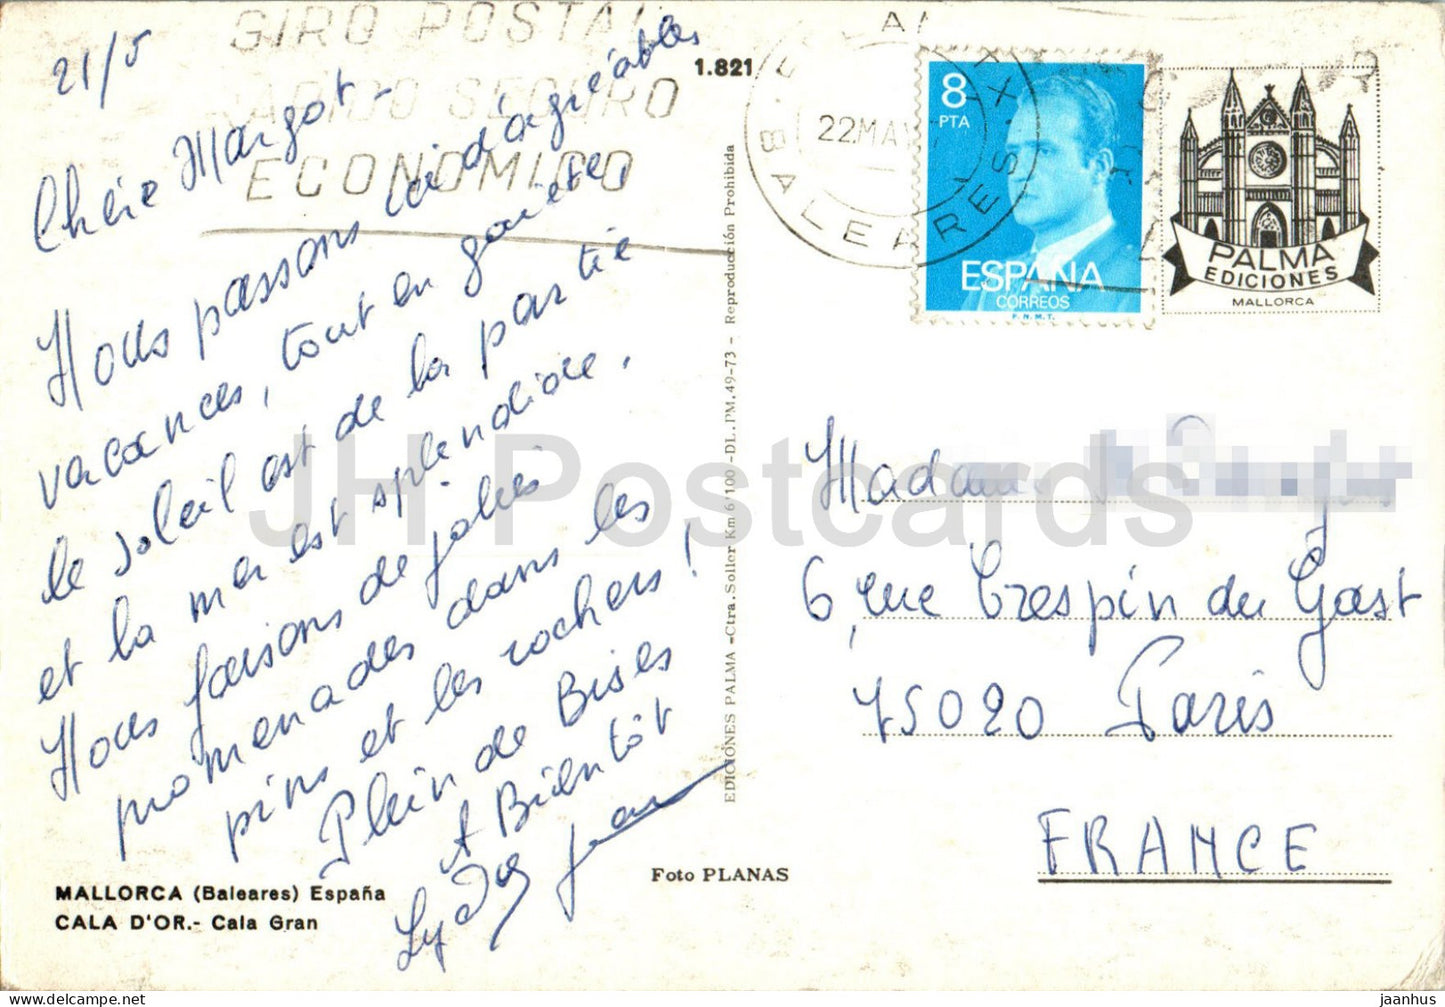 21/5
GIRO POSTAL
RAPIDO SEGURO
ECONOMICO
Chérie Margot -
Nous passons ici d'agréables
vacances, tout en gaieté,
le soleil est de la partie
et la mer est splendide.
Nous faisons de jolies
promenades dans les
pins et les rochers !
Plein de Bises
A Bientôt
MALLORCA (Baleares) España
CALA D'OR.- Cala Gran
1.821
EDICIONES PALMA -Ctra. Soller Km 6/100 -DL. PM. 49-73 - Reproducción Prohibida
Foto PLANAS
22 MA
BALEARES
8
PTA
ESPAÑA
CORREOS
F.N.M.T.
PALMA
EDICIONES
MALLORCA
Madame
6, rue Crespin du Gast
75020 Paris
FRANCE
JH Postcards
jaanhus